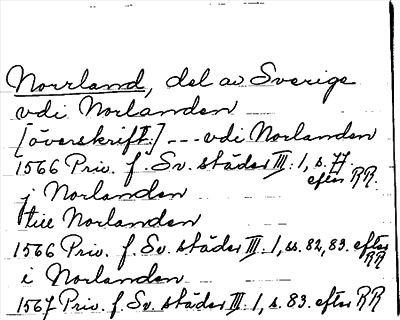 Norrland, del av Sverige
vdi Norlanden
[överskrift:] --- vdi Norlanden
1566 Priv. f. Sv. städer III: 1, s. 77.
efter RR.
j Norlanden
till Norlanden
1566 Priv. f. Sv. städer III: 1, ss. 82, 83. efter
RR
i Norlanden
1567 Priv. f. Sv. städer III: 1, s. 83. efter RR